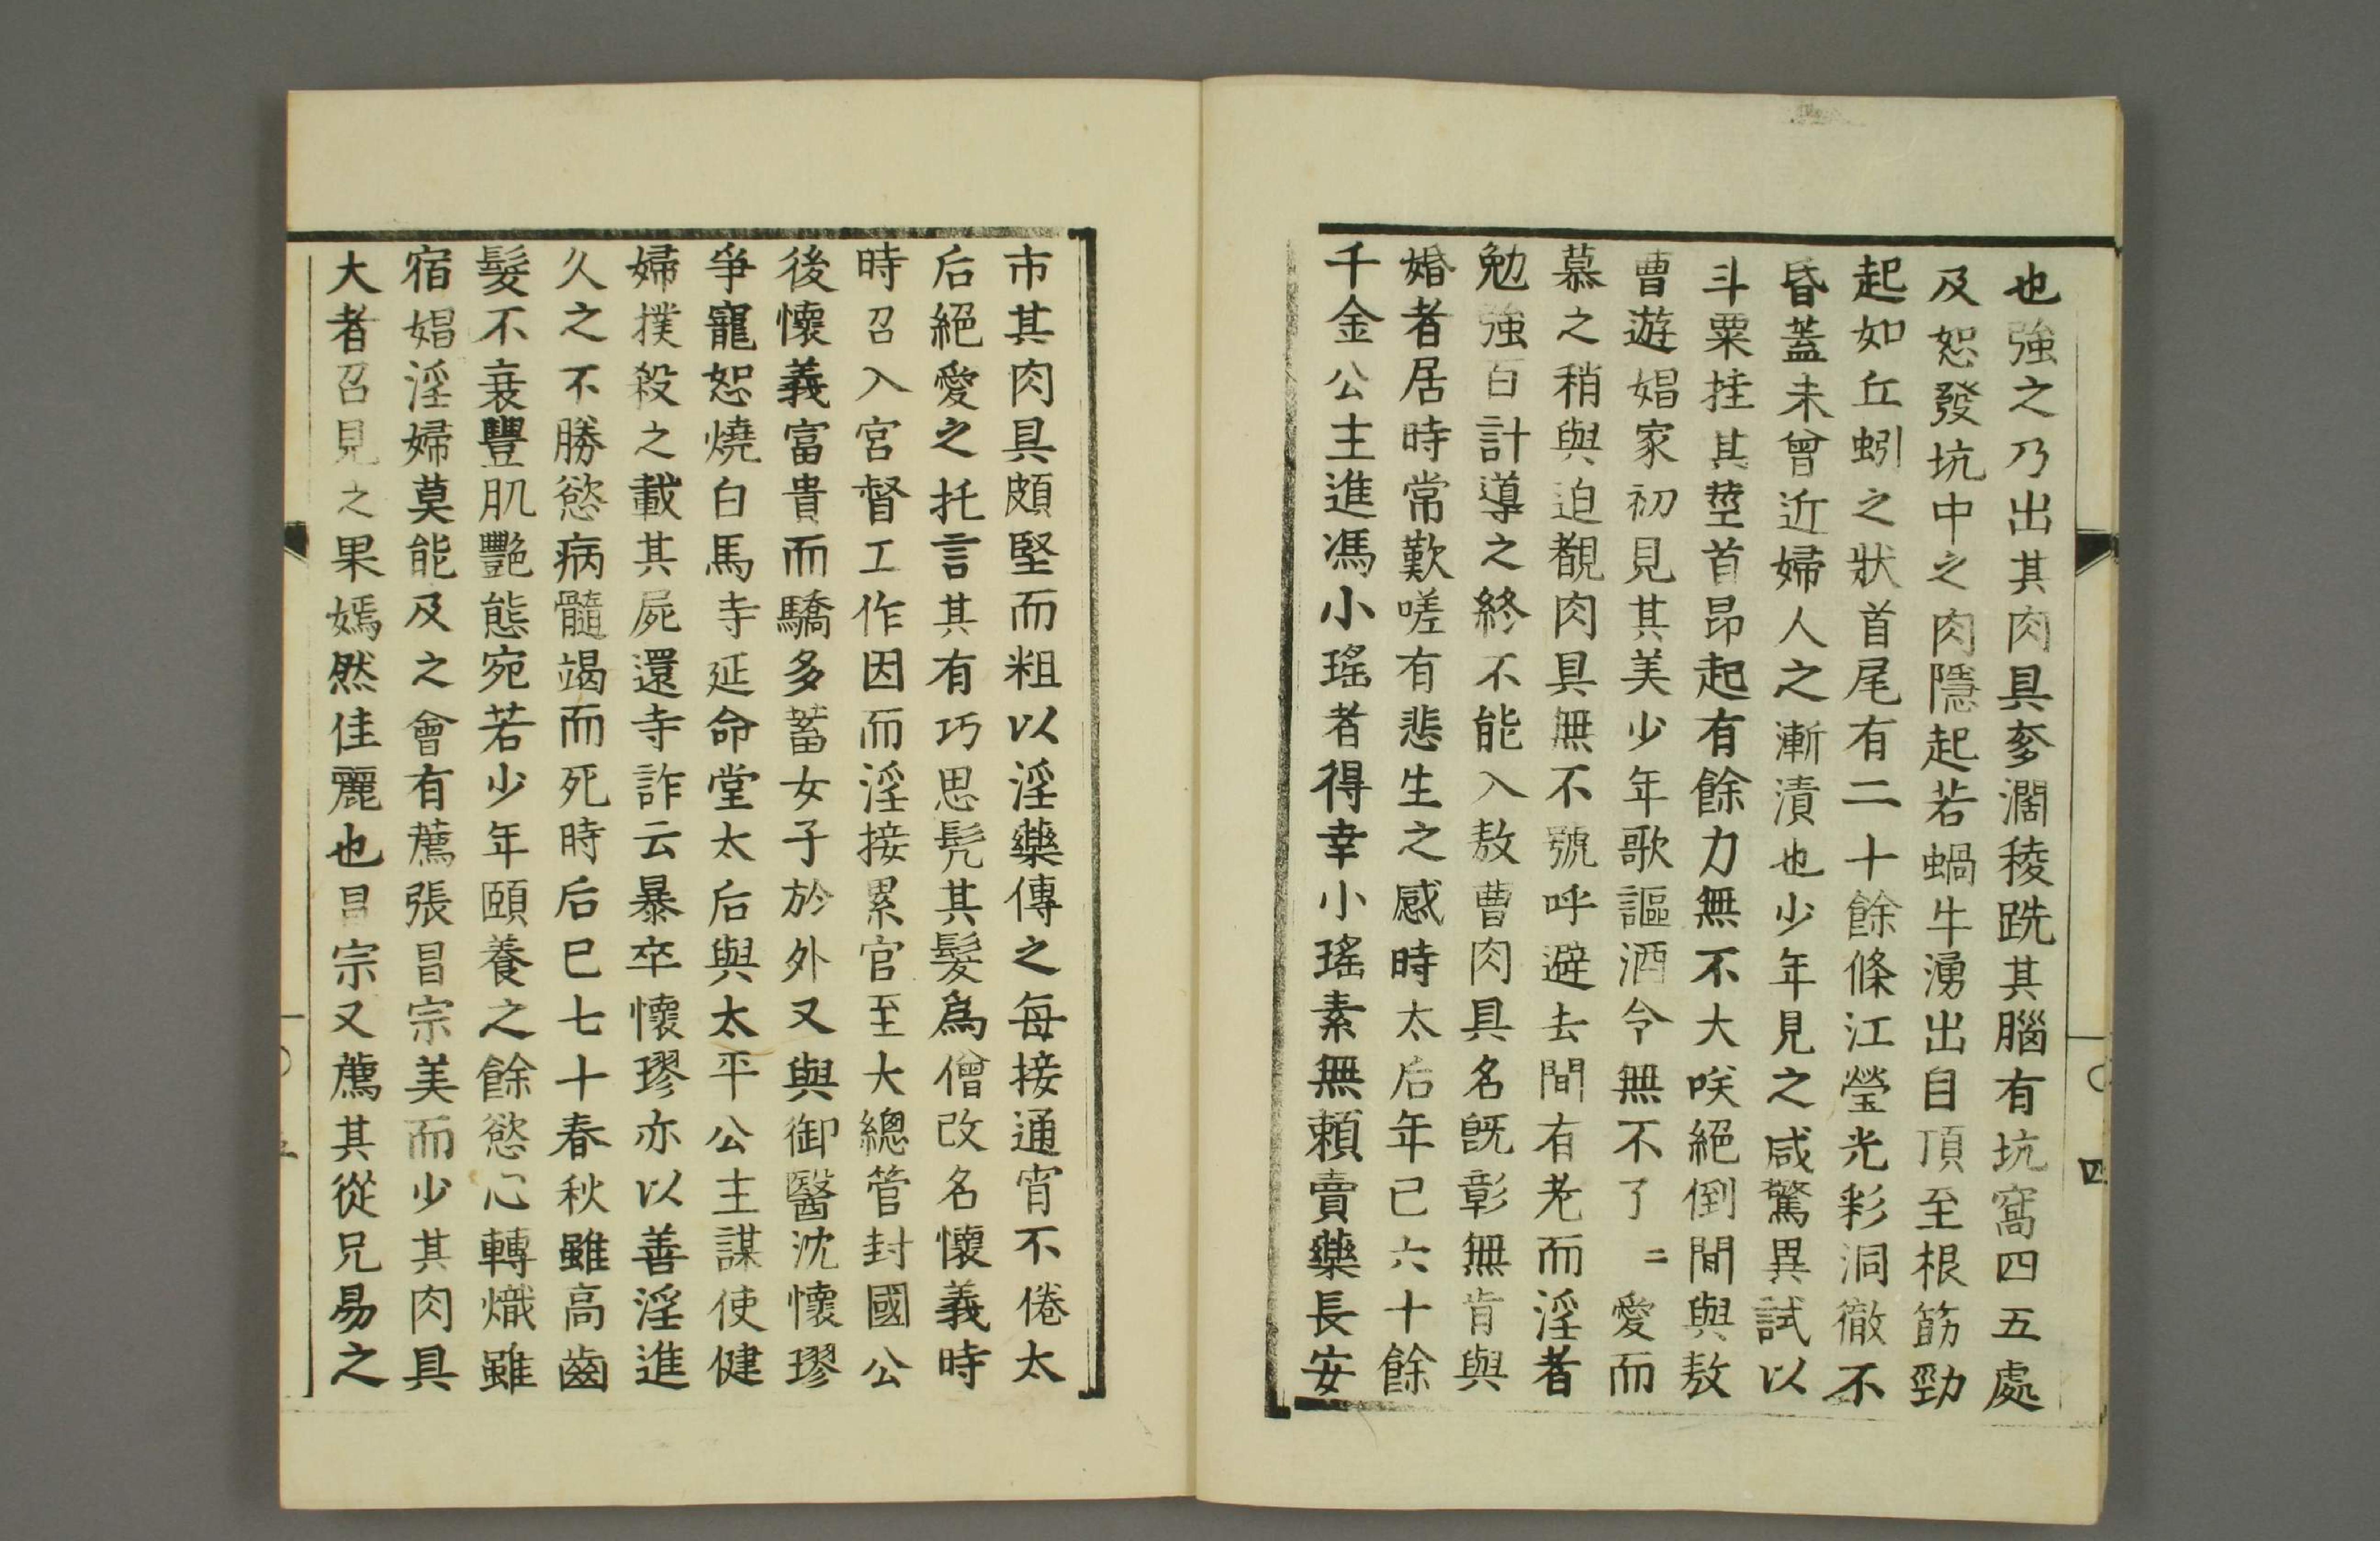 也強之乃出其肉具奓濶稜跣其腦有坑窩四五處
及恕發坑中之肉隱起若蝸牛湧出自頂至根筯勁
起如丘蚓之狀首尾有二十餘條江瑩光彩洞徹不
昏蓋未曾近婦人之漸漬也少年見之咸驚異試以
斗粟挂其莖首昂起有餘力無不大咲絕倒間與敖
曹遊娼家初見其美少年歌謳酒令無不了〻愛而
慕之稍與迫覩肉具無不號呼避去間有老而淫者
勉強百計導之終不能入敖曹肉具名旣彰無肯與
婚者居時常歎嗟有悲生之感時太后年已六十餘
千金公主進馮小瑤者得幸小瑤素無賴賣藥長安
四
市其肉具頗堅而粗以淫藥傳之每接通宵不倦太
后絕愛之托言其有巧思髠其髮爲僧改名懷義時
時召入宮督工作因而淫接累官至大總管封國公
後懷義富貴而驕多蓄女子於外又與御醫沈懷璆
爭寵恕燒白馬寺延命堂太后與太平公主謀使健
婦撲殺之載其屍還寺詐云暴卒懷璆亦以善淫進
久之不勝慾病髓竭而死時后巳七十春秋雖高齒
髮不衰豐肌艷態宛若少年頤養之餘慾心轉熾雖
宿娼淫婦莫能及之會有薦張昌宗美而少其肉具
大者召見之果嫣然佳麗也昌宗又薦其從兄易之